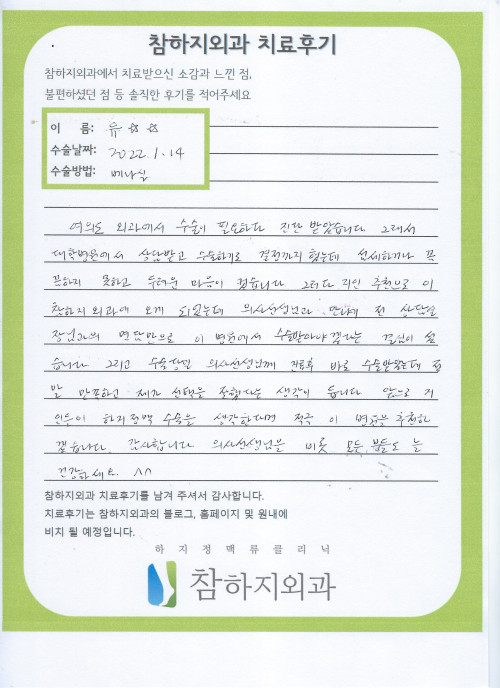 참하지외과 치료후기
참하지외과에서 치료받으신 소감과 느낀 점,
불편하셨던 점 등 솔직한 후기를 적어주세요
이 름: 류☆☆
수술날짜: 2022.1.14
수술방법: 베나실
여의도 외과에서 수술이 필요하다 진단 받았습니다 그래서
대학병원에서 상담받고 수술하기로 결정까지 했는데 선세하거나 꼼
꼼하지 못하고 두려운 마음이 컸습니다 그러다 지인 추천으로 이
참하지외과에 오게 되었는데 의사선생님과 만나기 전 상담실
장님과의 면담만으로 이 병원에서 수술받아야겠다는 결심이 섰
습니다 그리고 수술당일 의사선생님께 진료후 바로 수술받았는데 정
말 만족하고 제가 선택을 잘했다는 생각이 듭니다 앞으로 지
인들이 하지정맥 수술을 생각한다면 적극 이 병원을 추천하
겠습니다. 감사합니다 의사선생님을 비롯 모든 분들도 늘
건강하세요 ^^
참하지외과 치료후기를 남겨 주셔서 감사합니다.
치료후기는 참하지외과의 블로그, 홈페이지 및 원내에
비치 될 예정입니다.
하지정맥류클리닉
참하지외과